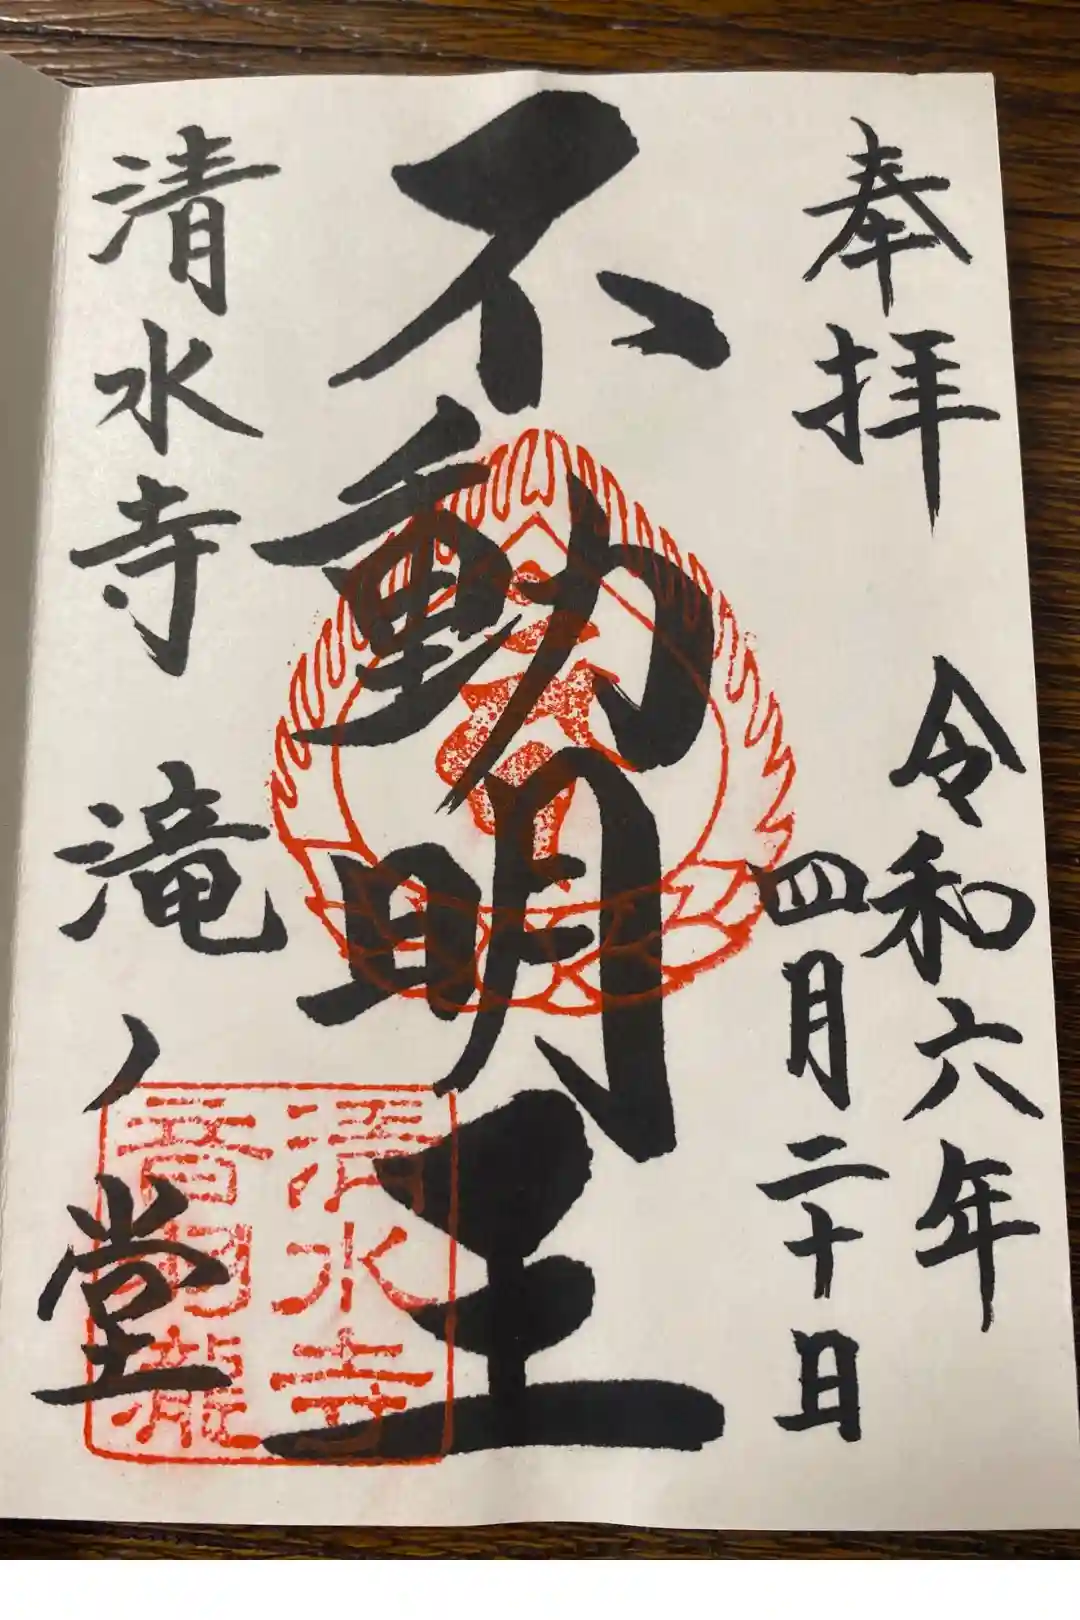 奉拝
令和六年
四月二十日
不動明王
清水寺 滝ノ堂
清水寺
音羽瀧